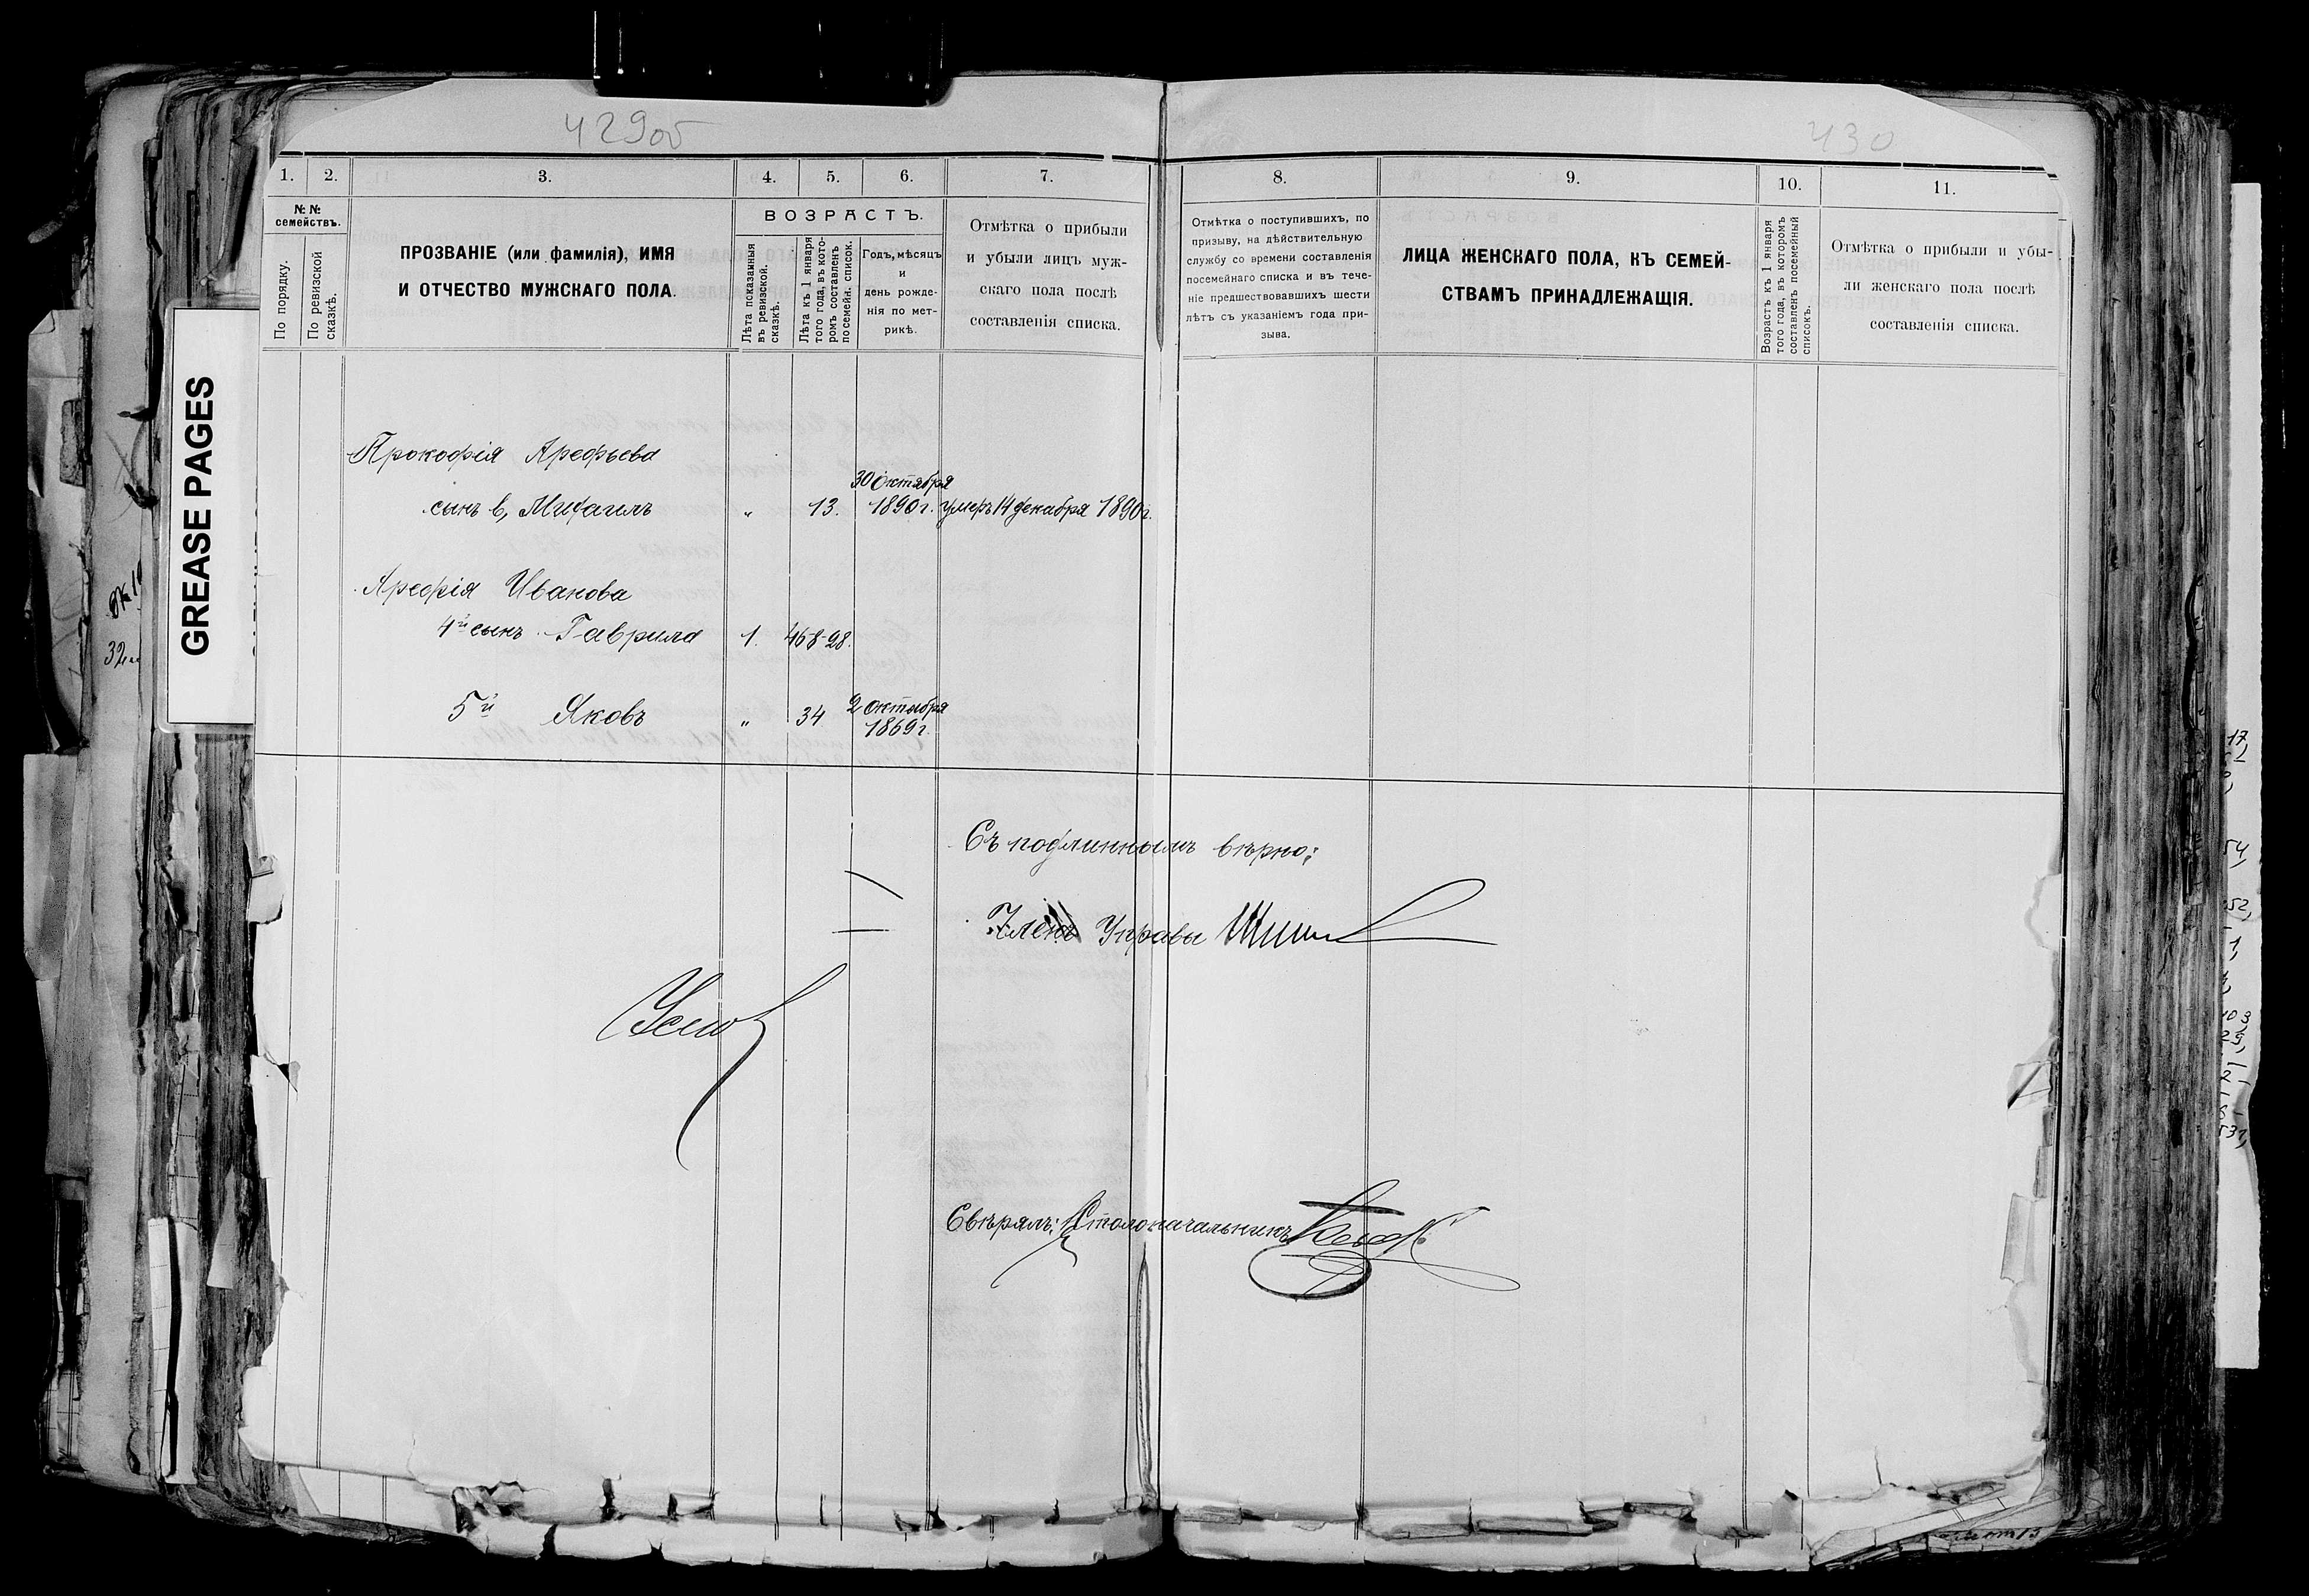 429об
430
1. 2. 3. 4. 5. 6. 7. 8. 9. 10. 11.
№№ семействъ.
По порядку.
По ревизской сказкѣ.
ПРОЗВАНІЕ (или фамилія), ИМЯ
И ОТЧЕСТВО МУЖСКАГО ПОЛА.
ВОЗРАСТЪ.
Лѣта показанныя
въ ревизской.
сказкѣ.
Лѣта къ 1 января
того года, въ кото-
ромъ составленъ
посемейн. список.
Годъ, мѣсяцъ
и
день рожде-
нія по мет-
рикѣ.
Отмѣтка о прибыли
и убыли лицъ муж-
скаго пола послѣ
составленія списка.
Отмѣтка о поступившихъ, по
призыву, на дѣйствительную
службу со времени составленія
посемейнаго списка и въ тече-
ніе предшествовавшихъ шести
лѣтъ съ указаніемъ года при-
зыва.
ЛИЦА ЖЕНСКАГО ПОЛА, КЪ СЕМЕЙ-
СТВАМЪ ПРИНАДЛЕЖАЩІЯ.
Возрастъ къ 1 января
того года, въ которомъ
составленъ посемейный
списокъ.
Отмѣтка о прибыли и убы-
ли женскаго пола послѣ
составленія списка.
GREASE PAGES
Прокофія Арефьева
30 октября
сынъ в, Михаилъ " 13. 1890 г. умеръ 14 декабря 1890 г.
Арефія Иванова
4й сынъ Гаврила 1. 46 8-98.
5й Яковъ " 34 2 октября
1869 г.
Съ подлиннымъ вѣрно:
Членъ Управы
Свѣрялъ: Столоначальникъ